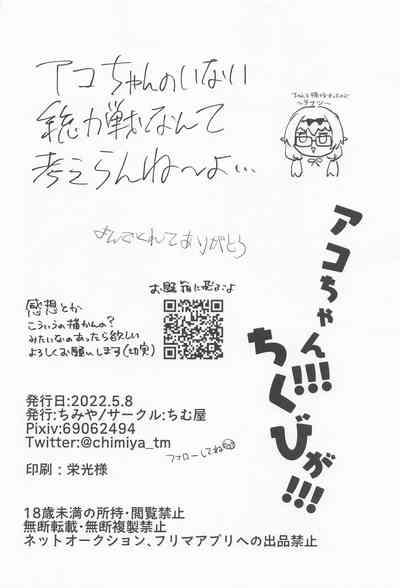 アコちゃんのいない
総力戦なんて
考えらんね〜よ…
よんでくれてありがとう
アコちゃん!!!
ちくびが!!!
お題箱に飛ぶよ
感想とか
こういうの描かんの?
みたいなのあったら欲しい
よろしくお願いします(切実)
発行日:2022.5.8
発行:ちみや/サークル:ちむ屋
Pixiv:69062494
Twitter:@chimiya_tm
フォローしてね
印刷:栄光様
18歳未満の所持・閲覧禁止
無断転載・無断複製禁止
ネットオークション、フリマアプリへの出品禁止